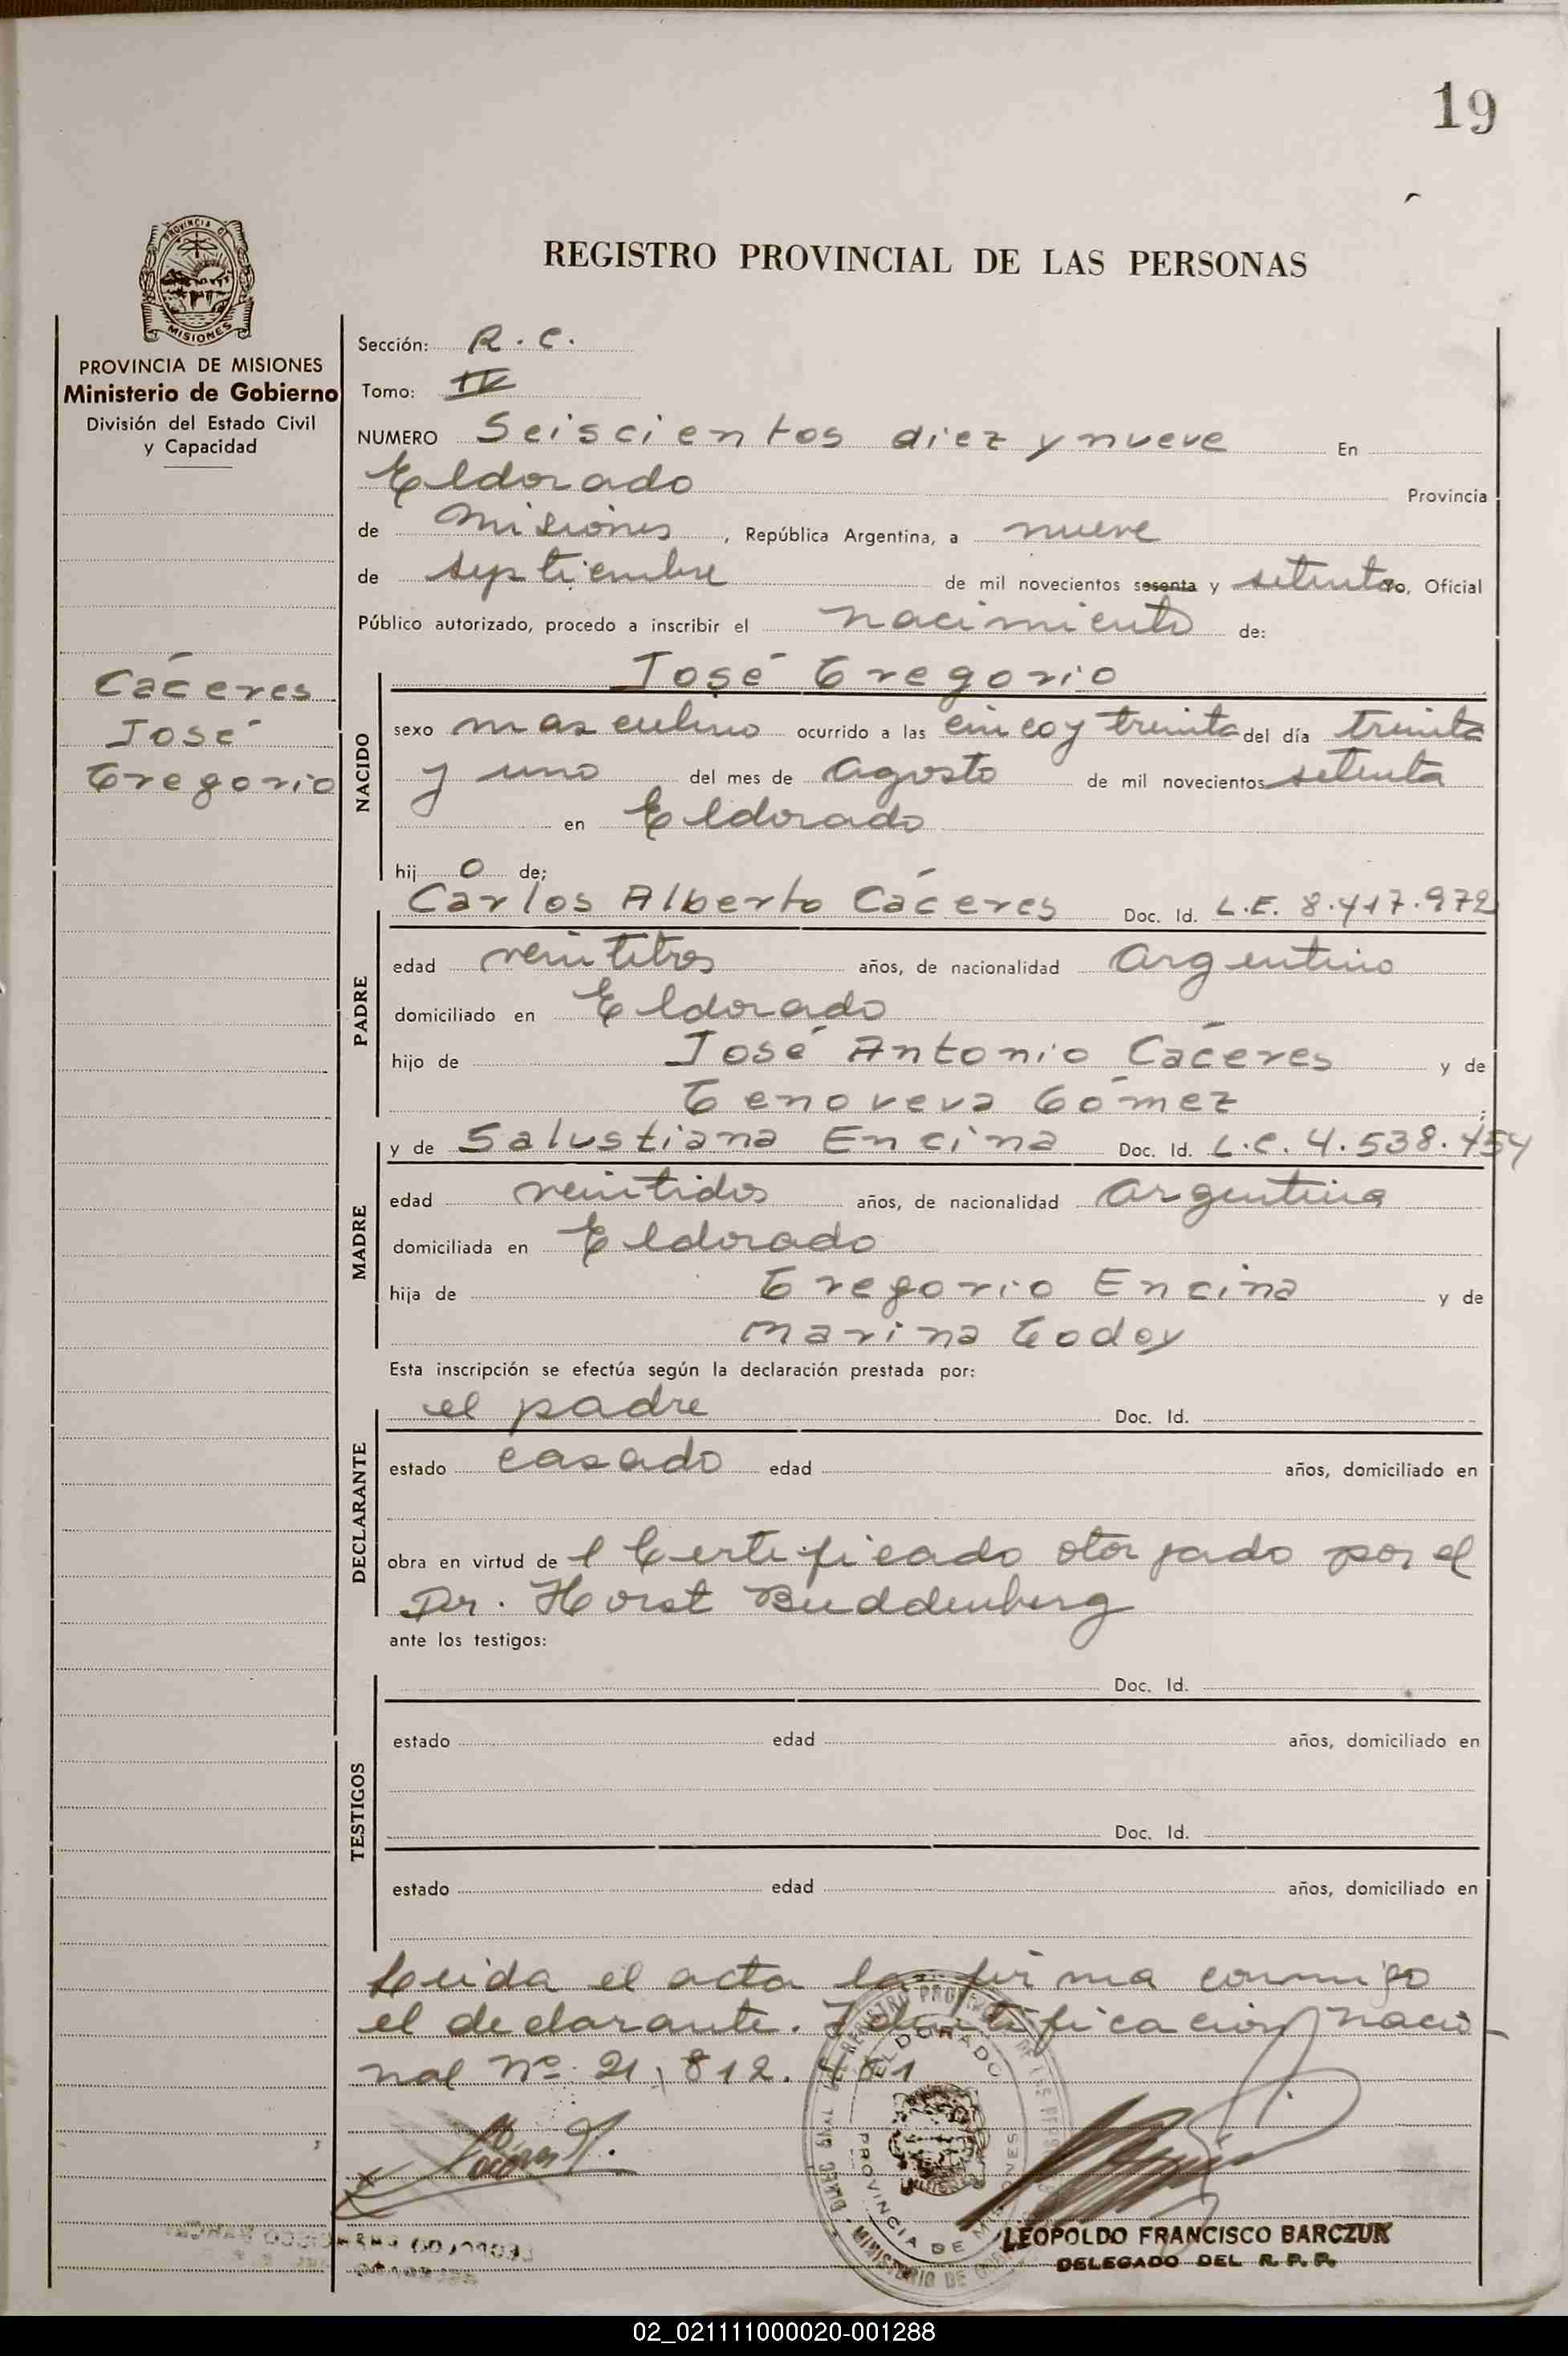 19
REGISTRO PROVINCIAL DE LAS PERSONAS
PROVINCIA DE MISIONES
Ministerio de Gobierno
División del Estado Civil
y Capacidad
Cáceres
José
Gregorio
Sección: R. C.
Tomo: IV
NUMERO Seiscientos diez y nueve En
Eldorado Provincia
de Misiones, República Argentina, a nueve
de septiembre de mil novecientos sesenta y setenta Yo, Oficial
Público autorizado, procedo a inscribir el nacimiento de:
NACIDO
José Gregorio
sexo masculino ocurrido a las cinco y treinta del día treinta
y uno del mes de Agosto de mil novecientos setenta
en Eldorado
hij o de;
PADRE
Carlos Alberto Cáceres Doc. Id. L.E. 8.417.972
edad veintitres años, de nacionalidad Argentino
domiciliado en Eldorado
hijo de José Antonio Cáceres y de
Genoveva Gómez ;
MADRE
y de Salustiana Encina Doc. Id. L.C. 4.538.454
edad veintidos años, de nacionalidad Argentina
domiciliada en Eldorado
hija de Gregorio Encina y de
Marina Godoy
Esta inscripción se efectúa según la declaración prestada por:
DECLARANTE
el padre Doc. Id.
estado casado edad años, domiciliado en
obra en virtud de l Certificado otorgado por el
Dr. Horst Buddenberg
ante los testigos:
TESTIGOS
Doc. Id.
estado edad años, domiciliado en
Doc. Id.
estado edad años, domiciliado en
Leida el acta la firma conmigo
el declarante. Identificación nacio
nal Nº 21.812.
ELDORADO
PROVINCIA DE MISIONES
LEOPOLDO FRANCISCO BARCZUK
DELEGADO DEL R. P. P.
02_021111000020-001288